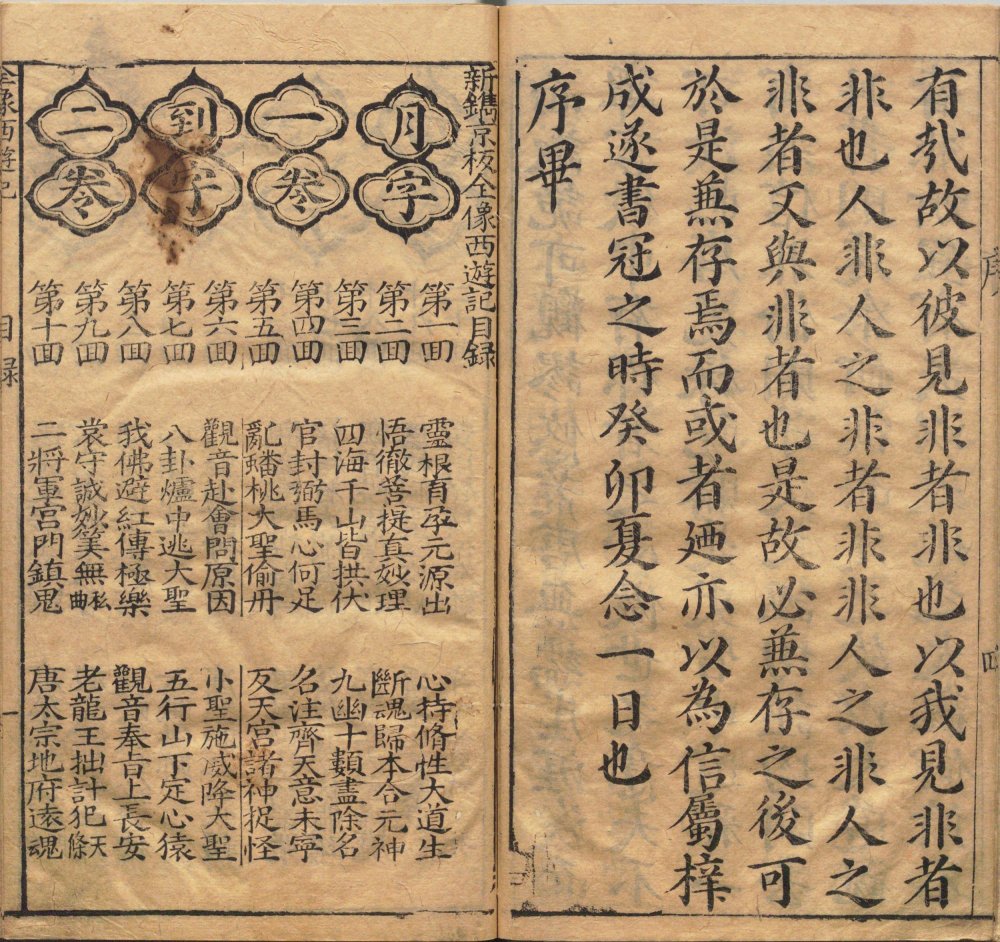 有㢤故以彼見非者非也以我見非者
非也人非人之非者非非人之非人之
非者又與非者也是故必兼存之後可
於是兼存焉而或者廼亦以為信屬梓
成遂書冠之時癸卯夏念一日也
序畢
序
四
新鐫京板全像西遊記目録
月字
一卷
到字
二卷
第一囬 靈根育孕元源出 心持脩性大道生
第二囬 悟徹菩提真妙理 斷魂歸本合元神
第三囬 四海千山皆拱伏 九幽十類盡除名
第四囬 官封弼馬心何足 名注齊天意未寧
第五囬 亂蟠桃大聖偷丹 反天宮諸神捉怪
第六囬 觀音赴會問原因 小聖施威降大聖
第七囬 八卦爐中逃大聖 五行山下定心猿
第八囬 我佛避紅傳極樂 觀音奉旨上長安
第九囬 袁守誠妙筭無私曲 老龍王拙計犯天條
第十囬 二將軍宮門鎮鬼 唐太宗地府逺魂
全像西遊記
目録
一